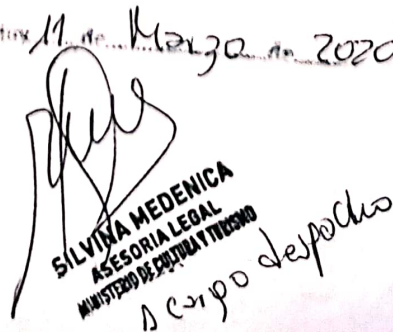 11 de Marzo de 2020
SILVINA MEDENICA
ASESORIA LEGAL
MINISTERIO DE CULTURA Y TURISMO
A cargo despacho